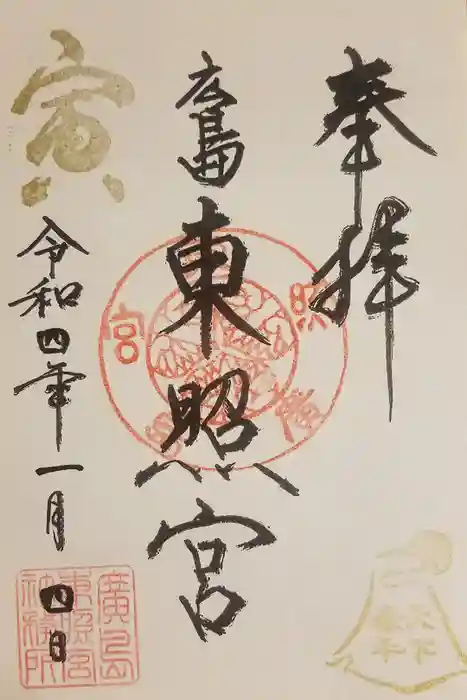 奉拝
広島
東照宮
寅
令和四年一月四日
廣島
東照宮
社務所
天下
泰平